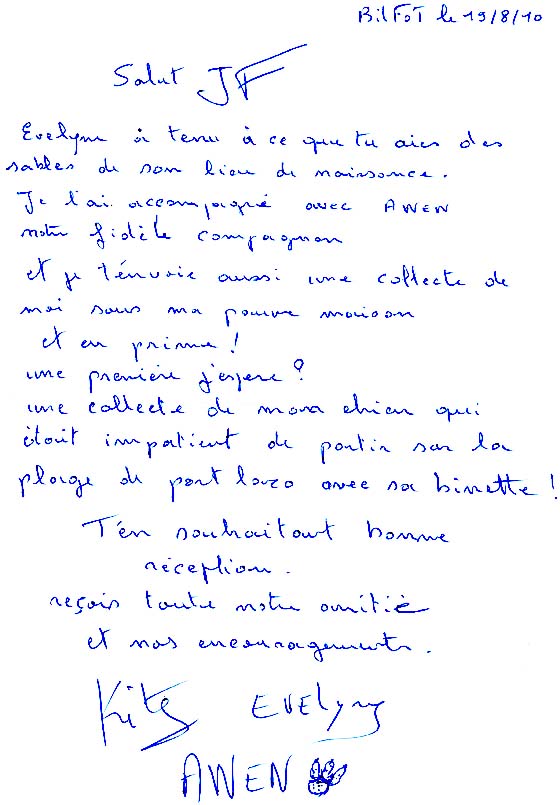 Bilfot le 19/8/10
Salut JF
Evelyne à tenu à ce que tu aies des
sables de son lieu de naissance.
Je l'ai accompagné avec AWEN
notre fidèle compagnon
et je t'énvoie aussi une collecte de
moi sous ma pauvre maison
et en prime !
une première j'espere ?
une collecte de mon chien qui
étoit impatient de partir sur la
plage de port lazo avec sa binette !
T'én souhaitant bonne
réception.
reçois toute notre amitié
et nos encouragements.
Evelyne
AWEN